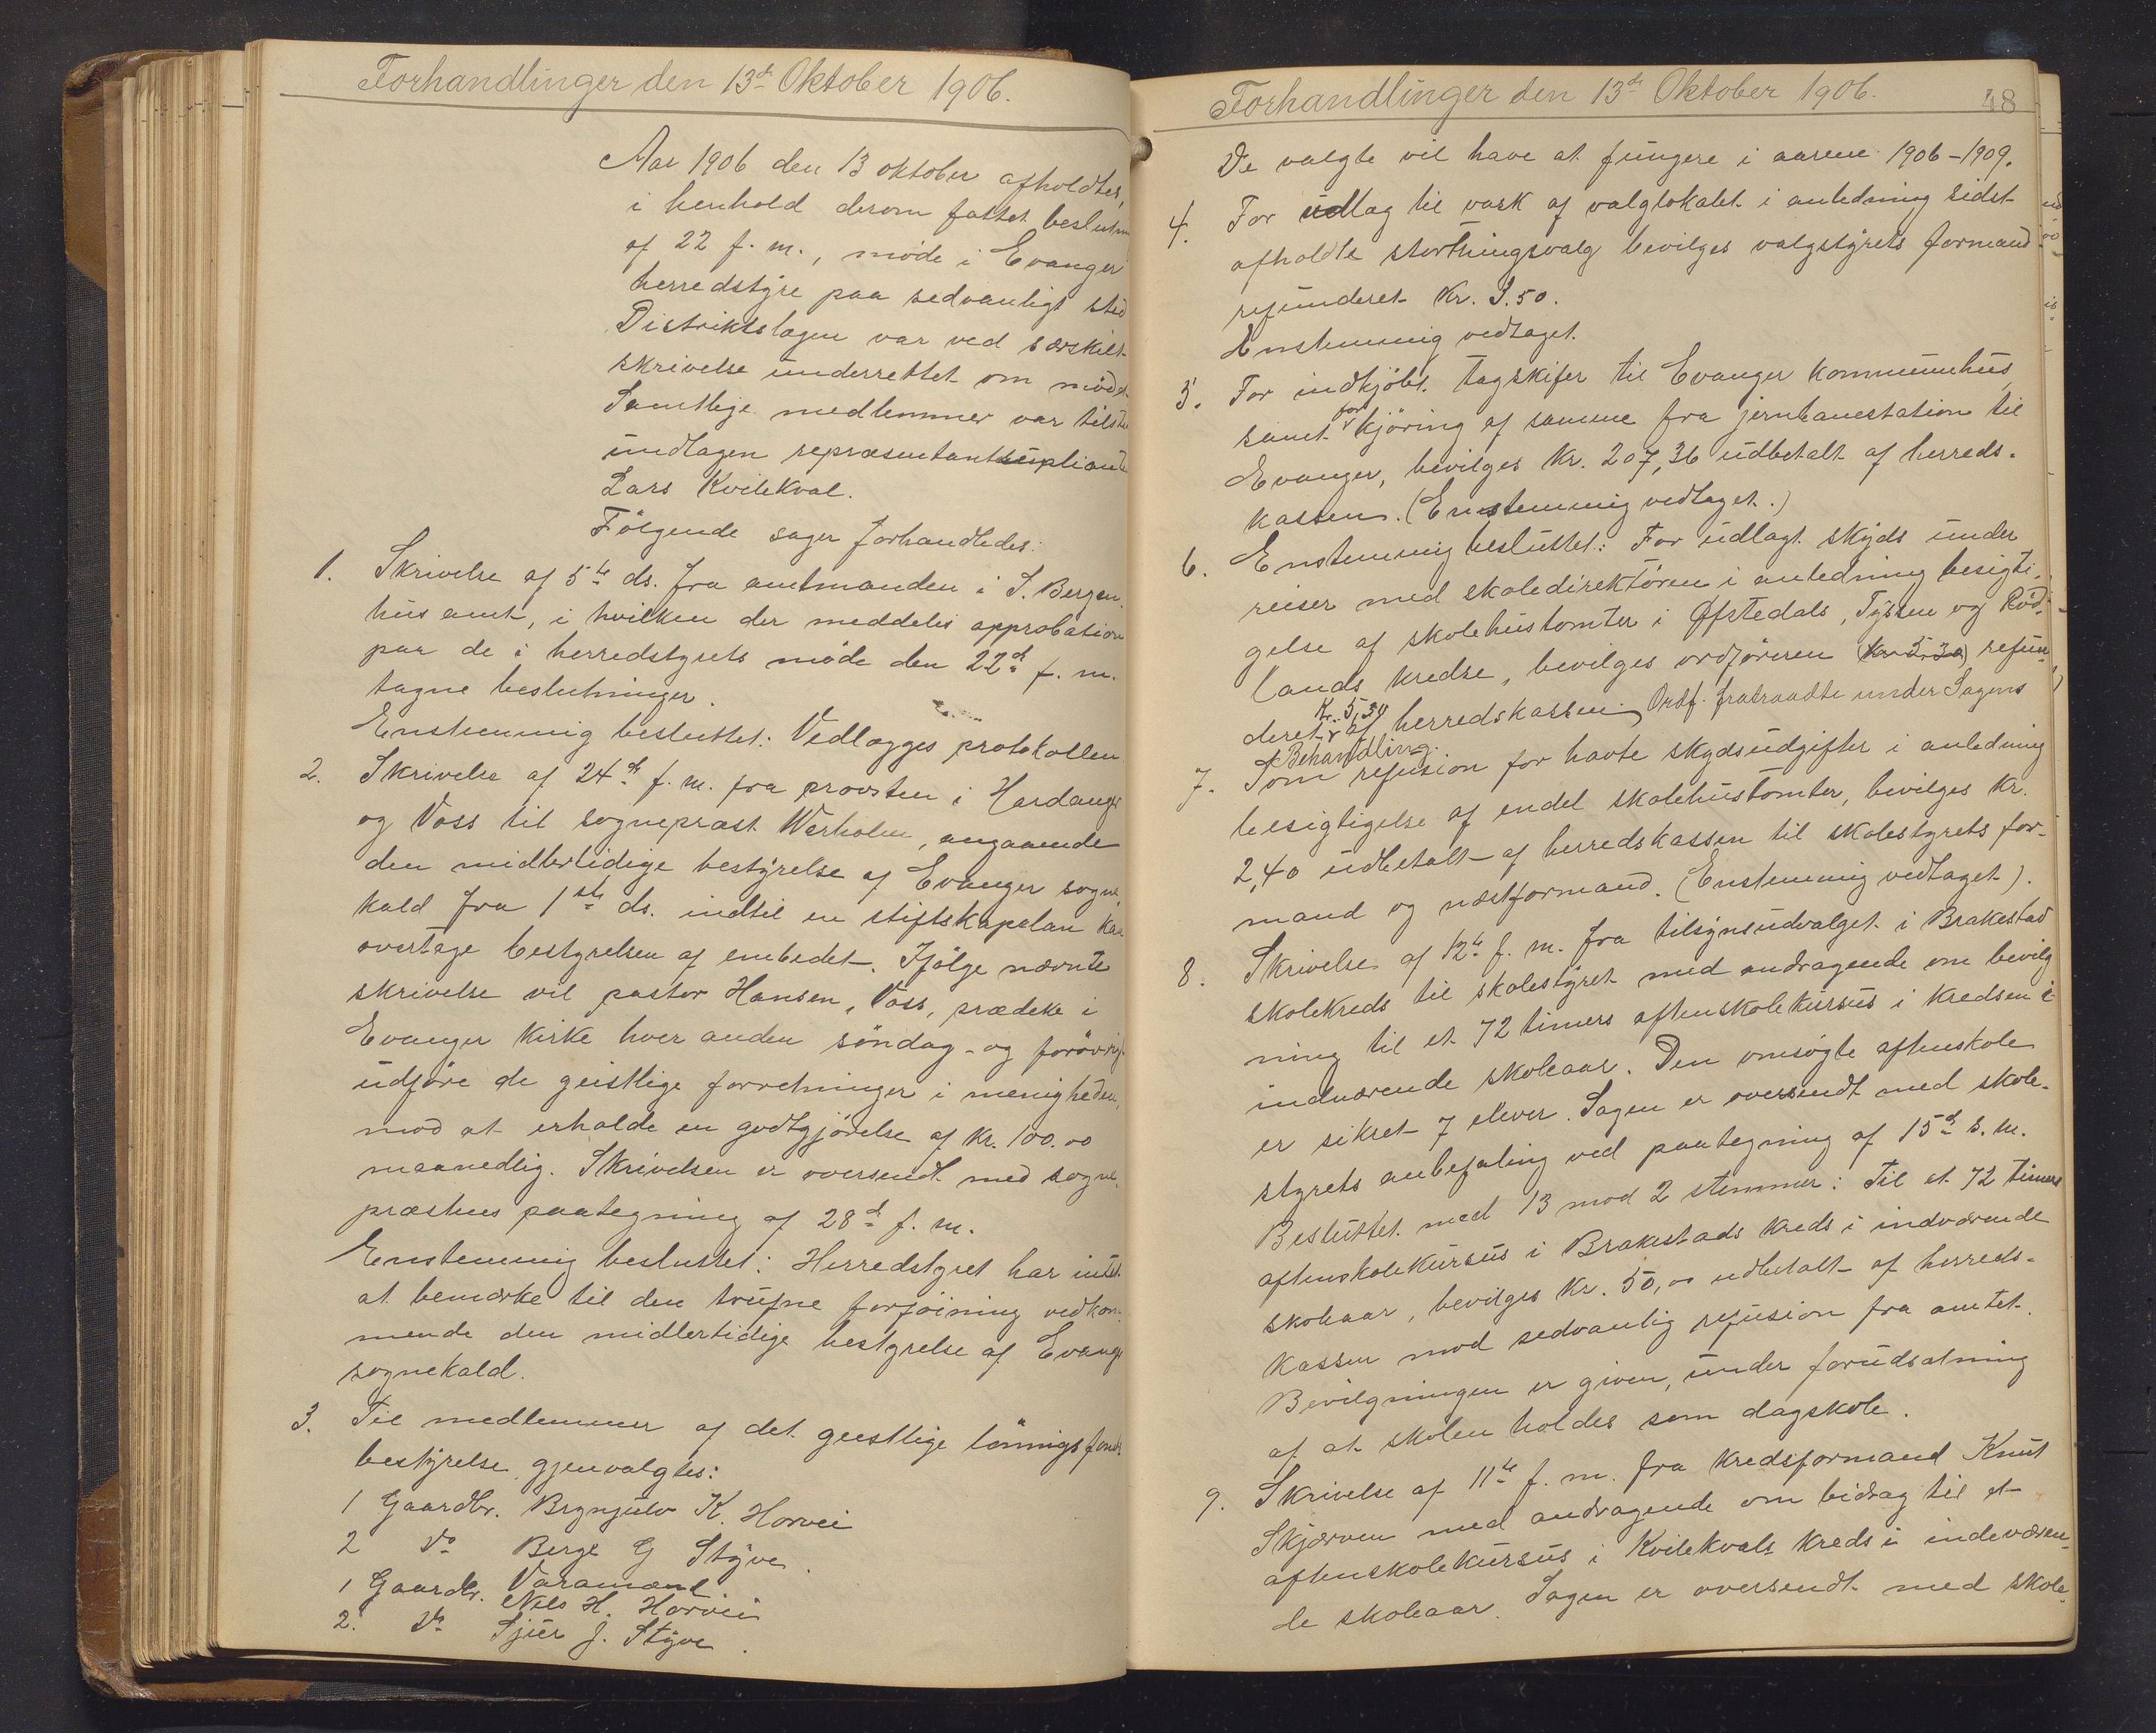 Forhandlinger den 13de Oktober 1906.
Aar 1906 den 13 oktober afholdtes,
i henhold derom fattet beslutn
af 22 f. m., møde i Evanger
herredstyre paa sedvanligt sted
Distriktslægen var ved særskilt
skrivelse underrettet om mødet.
Samtlige medlemmer var tilste
undtagen repræsentantsupliant
Lars Kvilekval.
Følgende sager forhandledes:
1. Skrivelse af 5te ds. fra amtmanden i S. Bergen-
hus amt, i hvilken der meddeles approbation
paa de i herredstyrets møde den 22de f. m.
tagne beslutninger.
Enstemmig besluttet: Vedlægges protokollen
2. Skrivelse af 24de f. m. fra provsten i Hardanger
og Voss til sogneprest Werholm, angaaende
den midlertidige bestyrelse af Evanger sogne-
kald fra 1ste ds. indtil en stiftskapelan kan
overtage bestyrelsen af embedet. Ifølge nævnte
skrivelse vil pastor Hansen, Voss, prædeke i
Evanger kirke hver anden søndag og forøvrigt
udføre de geistlige forretninger i menigheden,
mod at erholde en godtgjørelse af kr. 100.00
maanedlig. Skrivelsen er oversendt med sogne-
præstens paategning af 28de f. m.
Enstemmig besluttet: Herredstyret har intet
at bemærke til den trufne forføining vedkom-
mende den midlertidige bestyrelse af Evanger
sognekald.
3. Til medlemmer af det geistlige lønningsfonds
bestyrelse gjenvalgtes:
1 Gaardbr. Brynjulv K. Horvei
2 do Berge G Styve.
Varamænd
1 Gaardbr. Nils H. Horvei
2. do Sjur J. Styve.
Forhandlinger den 13de Oktober 1906. 48
De valgte vil have at fungere i aarene 1906-1909.
4. For udlæg til vask af valglokalet i anledning sidst
afholdte stortningsvalg bevilges valgstyrets formand
refunderet Kr. 3.50.
Enstemmig vedtaget.
5. For indkjøbt tagskifer til Evanger kommunehus
samt for kjøring af samme fra jernbanestation til
Evanger, bevilges Kr. 207,36 udbetalt af herreds-
kassen. (Enstemmig vedtaget.)
6. Enstemmig besluttet: For udlagt skyds under
reiser med skoledirektøren i anledning besigti-
gelse af skolehustomter i Øfstedals, Tyssen og Rød-
lands kredse, bevilges ordføreren (kr 5,30) refun-
deret Kr. 5,30 af herredskassen. Ordf. fratraadte under Sagens
Behandling.
7. Som refusion for havte skydsudgifter i anledning
besigtigelse af endel skolehustomter, bevilges Kr.
2,40 udbetalt af herredskassen til skolestyrets for-
mand og næstformand. (Enstemmig vedtaget).
8. Skrivelse af 12te f. m. fra tilsynsudvalget i Brakestad
skolekreds til skolestyret med andragende om bevilg
ning til et 72 timers aftenskolekursus i kredsen i
indværende skoleaar. Den omsøgte aftenskole
er sikret 7 elever. Sagen er oversendt med skole-
styrets anbefaling ved paategning af 15de s. m.
Besluttet med 13 mod 2 stemmer: Til et 72 timers
aftenskolekursus i Brakestads kreds i indværende
skoleaar, bevilges Kr. 50,00 udbetalt af herreds-
kassen mod sedvanlig refusion fra amtet.
Bevilgningen er given, under forudsætning
af at skolen holdes som dagskole.
9. Skrivelse af 11te f. m. fra kredsformand Knut
Skjerven med andragende om bidrag til et
aftenskolekursus i Kvilekvals kreds i indeværen-
de skoleaar. Sagen er oversendt med skole-